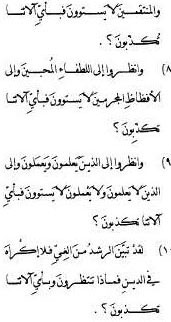 والمنتقمين لا يستوون فبأي آلائنا
تكذبون؟.
(٨ وانظروا إلى اللطفاء المحبين وإلى
الأفظاظ المجرمين لا يستوون فبأي آلائنا
تكذبون؟
(٩ وانظروا إلى الذين يعلمون ويعملون وإلى
الذين لا يعلمون ولا يعملون لا يستوون فبأي
آلائنا تكذبون؟
(١٠ لقد تبين الرشد من الغي فلا إكراه
في الدين فماذا تنتظرون وبأي آلائنا
تكذبون؟.